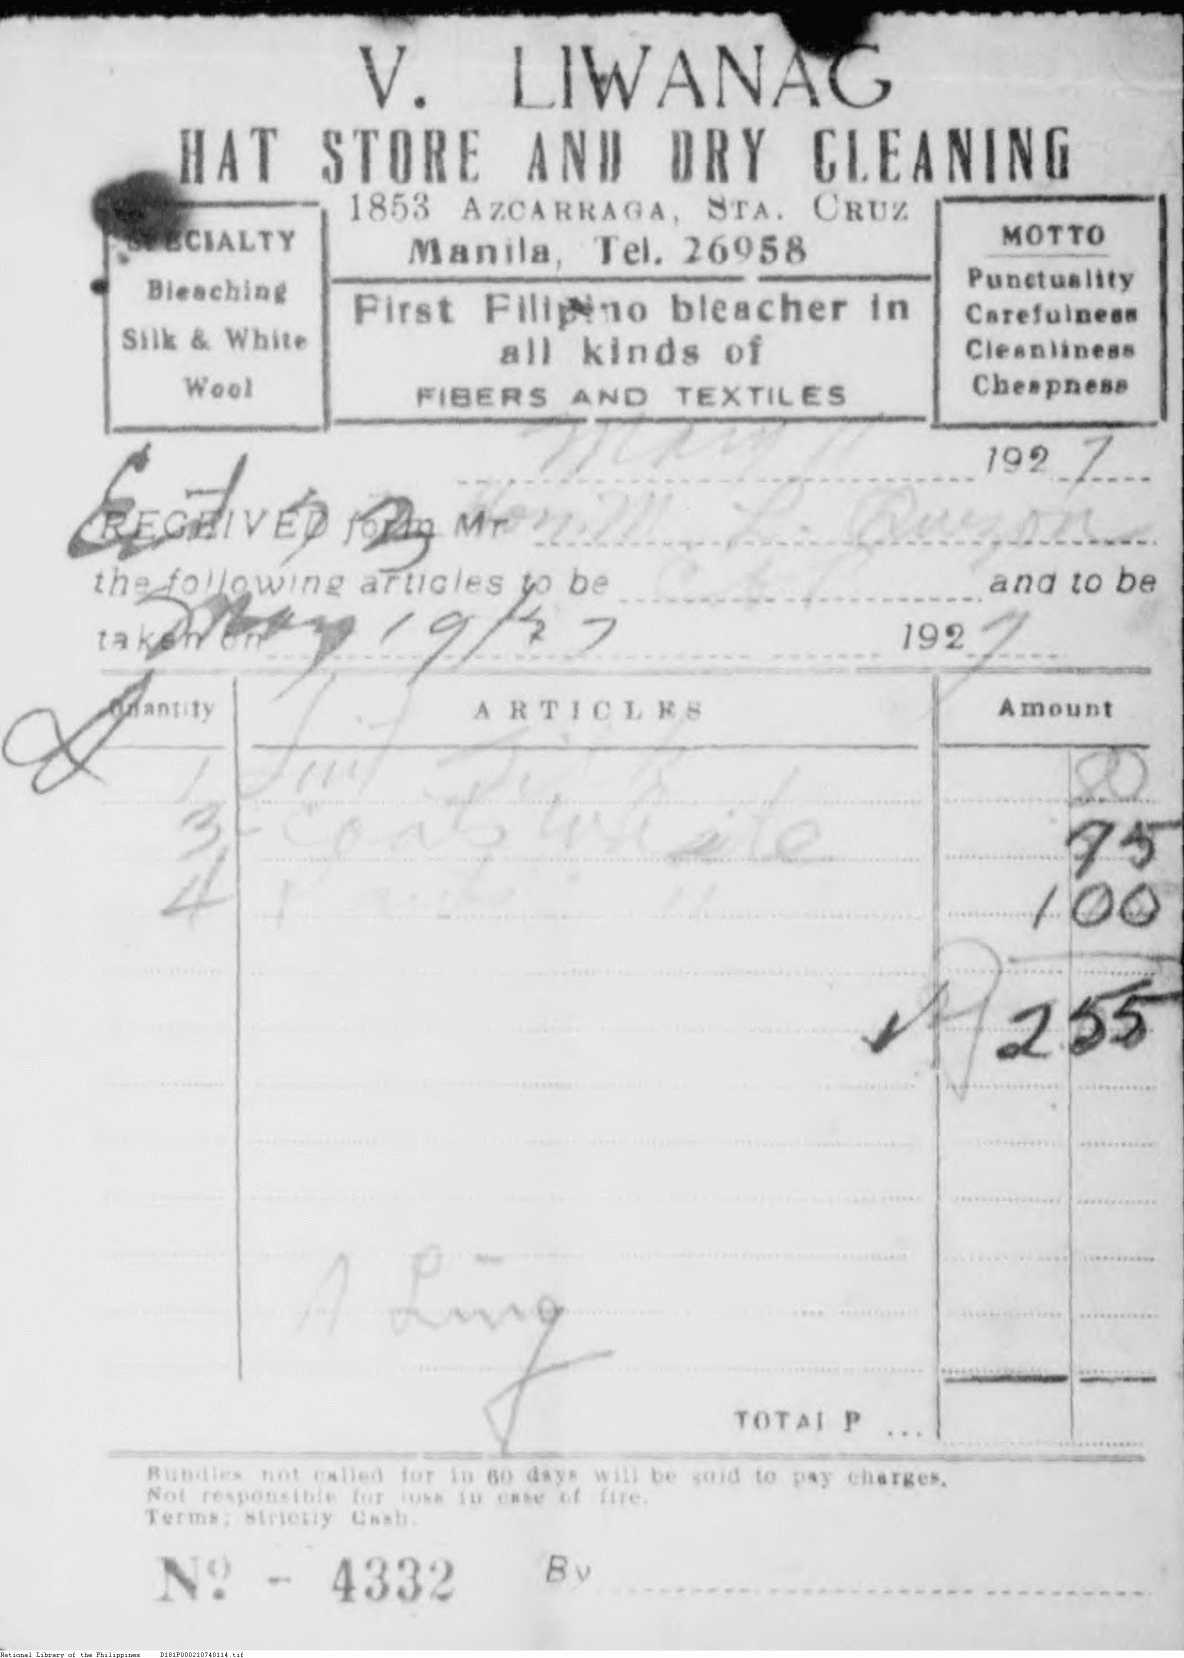 V. LIWANAG
HAT STORE AND DRY CLEANING
1853 AZCARRAGA, STA. CRUZ
Manila, Tel. 26958
SPECIALTY
Bleaching
Silk & White
Wool
First Filipino bleacher in
all kinds of
FIBERS AND TEXTILES
MOTTO
Punctuality
Carefulness
Cleanliness
Cheapness
May 11 1927
RECEIVED form Mr Hon. M. L. Quezon
the following articles to be and to be
taken on May 19/27 1927
Quantity ARTICLES Amount
1 Suit 80
3 - Coats White 75
4 " 100
255
TOTAL P ...
Bundles not called for in 60 days will be sold to pay charges.
Not responsible for loss in case of fire.
Terms; Strictly Cash.
Nº - 4332 By
National Library of the Philippines D181P000210740114.tif